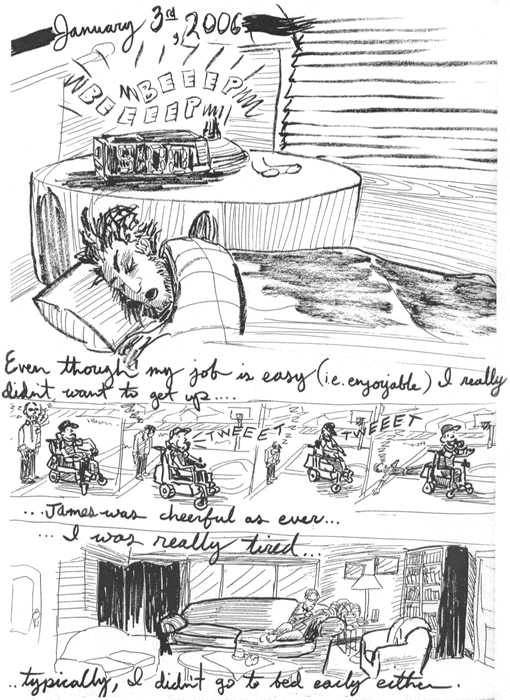 January 3rd, 2006
MBEEEPM
MBEEEEPM
Even though my job is easy (i.e. enjoyable) I really
didn't want to get up....
TWEEET
TWEEET
...James was cheerful as ever...
... I was really tired...
..typically, I didn't go to bed early either.